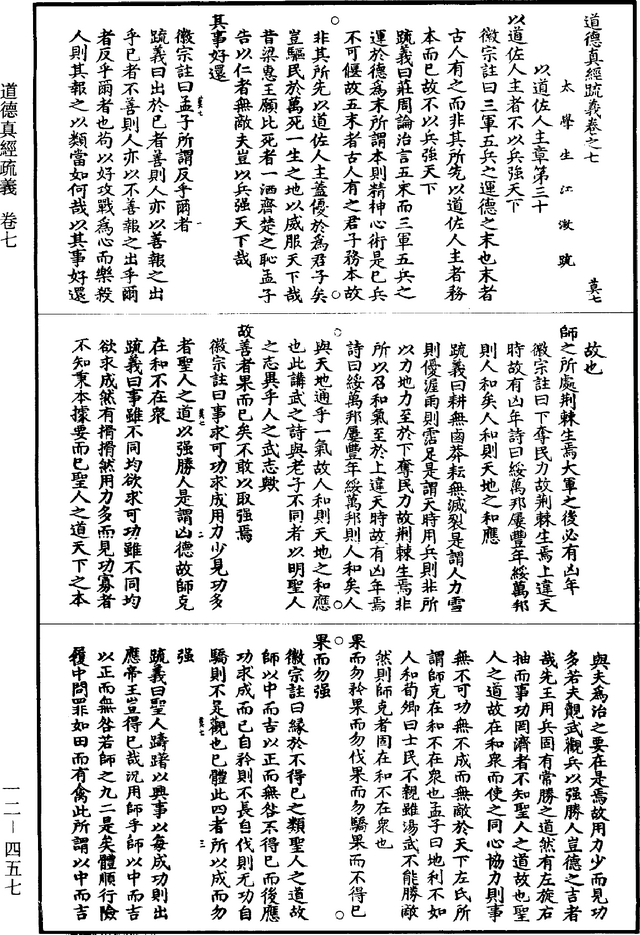 道德真經疏義卷之七
太學生江澂疏　莫七
以道佐人主章第三十
以道佐人主者不以兵強天下
徽宗註曰三軍五兵之運德之末也末者
古人有之而非其所先以道佐人主者務
本而已故不以兵強天下
疏義曰莊周論治言五末而三軍五兵之
運於德為末所謂本則精神心術是已兵
不可偃故五末者古人有之君子務本故
非其所先以道佐人主蓋優於為君子矣
豈驅民於萬死一生之地以威服天下哉
昔梁惠王願比死者一洒齊楚之恥孟子
告以仁者無敵夫豈以兵強天下哉
其事好還
徽宗註曰孟子所謂反乎爾者
疏義曰出於己者善則人亦以善報之出
乎己者不善則人亦以不善報之出乎爾
者反乎爾者也苟以好攻戰為心而樂殺
人則其報之以類當如何哉以其事好還
故也
師之所處荆棘生焉大軍之後必有凶年
徽宗註曰下奪民力故荆棘生焉上違天
時故有凶年詩曰綏萬邦屢豐年綏萬邦
則人和矣人和則天地之和應
疏義曰耕無鹵莽耘無滅裂是謂人力雪
則優渥雨則霑足是謂天時用兵則非所
以力地力至於下奪民力故荆棘生焉非
所以召和氣至於上違天時故有凶年焉
詩曰綏萬邦屢豐年綏萬邦則人和矣人
與天地通乎一氣故人和則天地之和應
也此講武之詩與老子不同者以明聖人
之志異乎人之武志歟
故善者果而已矣不敢以取強焉
徽宗註曰事求可功求成用力少見功多
者聖人之道以強勝人是謂凶德故師克
在和不在衆
疏義曰事雖不同均欲求可功雖不同均
欲求成然有搰搰然用力多而見功寡者
不知秉本據要而已聖人之道天下之本
與夫為治之要在是焉故用力少而見功
多若夫觀武觀兵以強勝人豈德之吉者
哉先王用兵固有常勝之道然有左旋右
抽而事功罔濟者不知聖人之道故也聖
人之道故在和衆而使之同心協力則事
無不可功無不成而無敵於天下左氏所
謂師克在和不在衆也孟子曰地利不如
人和荀卿曰士民不親雖湯武不能勝敵
然則師克者固在和不在衆也
果而勿矜果而勿伐果而勿驕果而不得已
果而勿强
徽宗註曰緣於不得已之類聖人之道故
師以中而吉以正而無咎不得已而後應
功求成而已自矜則不長自伐則無功自
驕則不足觀也已體此四者所以成而勿
强
疏義曰聖人躊躇以興事以每成功則出
應帝王豈得已哉況用師乎師以中而吉
以正而無咎若師之九二是矣體順行險
履中問罪如田而有禽此所謂以中而吉
道德真經疏義　卷七
一二—四五七